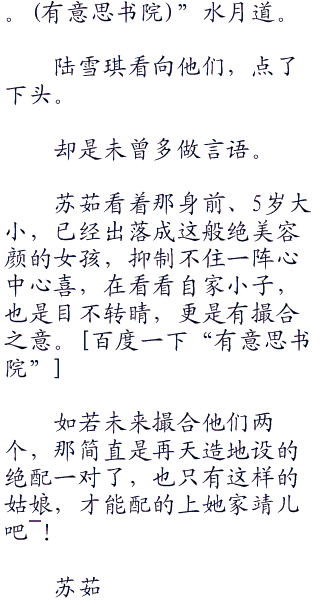 。(有意思书院)”水月道。
陆雪琪看向他们，点了
下头。
却是未曾多做言语。
苏茹看着那身前、5岁大
小，已经出落成这般绝美容
颜的女孩，抑制不住一阵心
中心喜，在看看自家小子，
也是目不转晴，更是有撮合
之意。[百度一下“有意思书
院”]
如若未来撮合他们两
个，那简直是再天造地设的
绝配一对了，也只有这样的
姑娘，才能配的上她家靖儿
吧¯！
苏茹